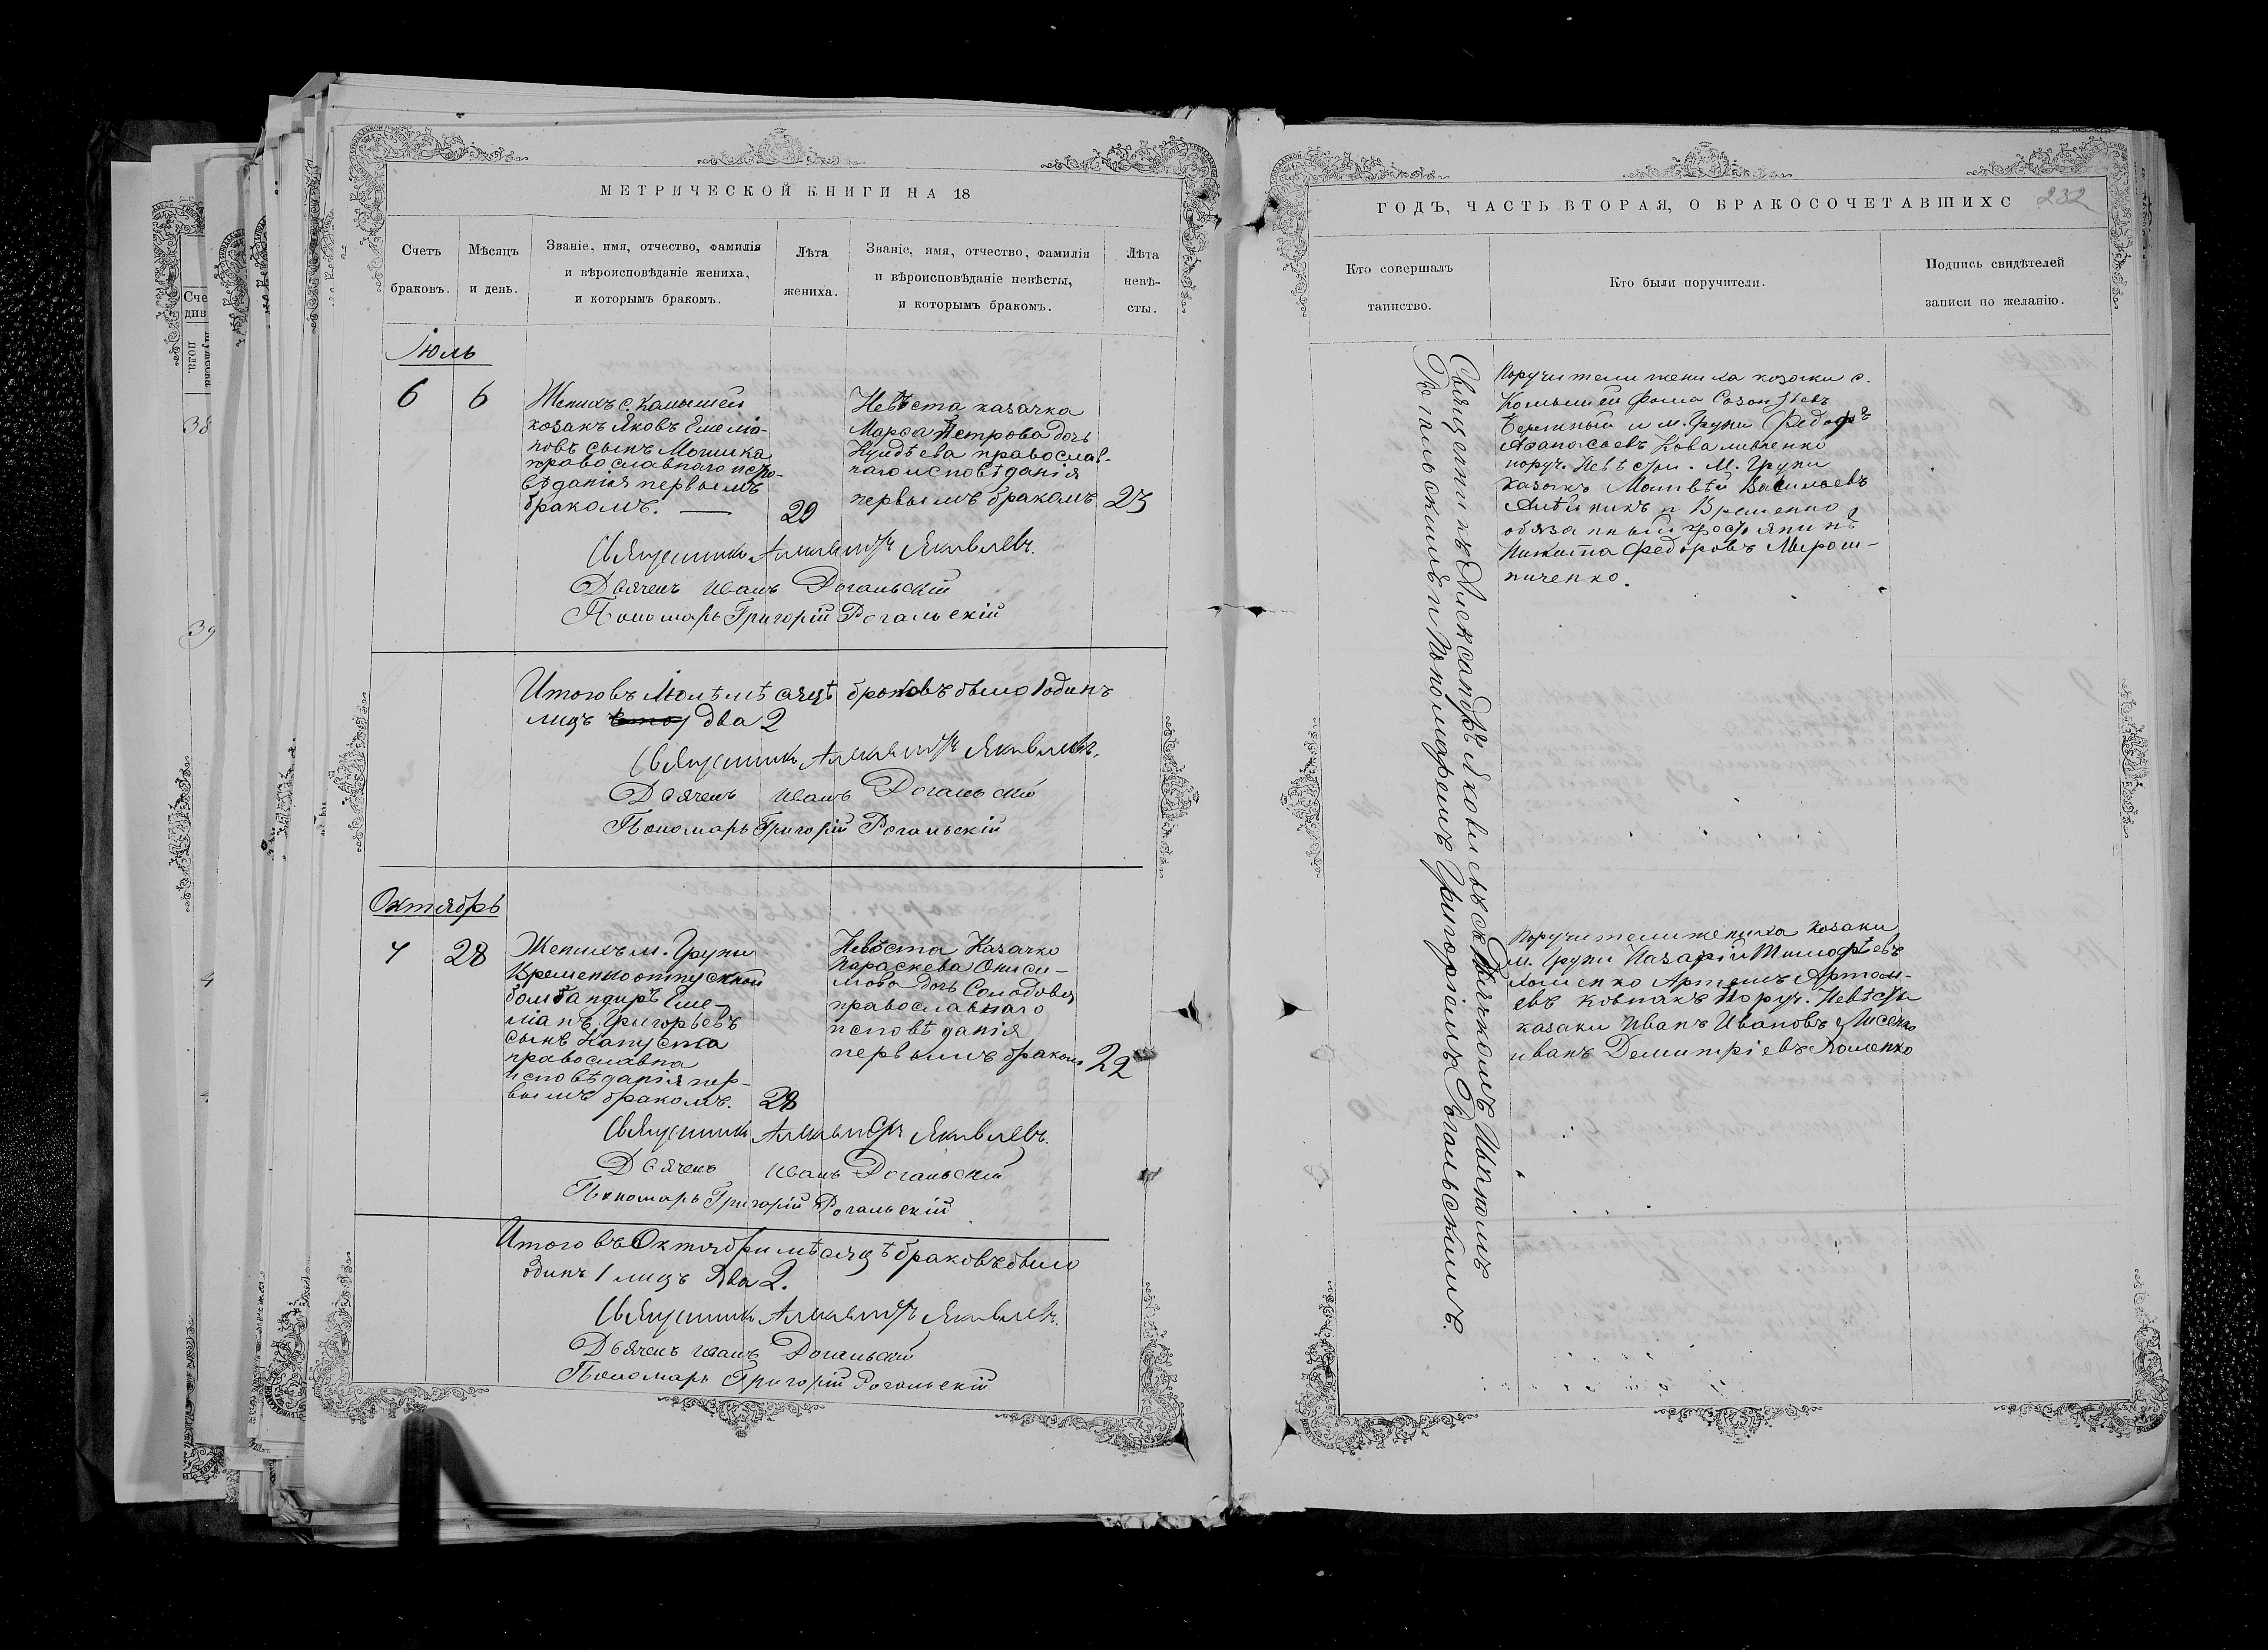 МЕТРИЧЕСКОЙ КНИГИ НА 18
Счетъ
браковъ.
Мѣсяцъ
и день.
Званіе, имя, отчество, фамилія
и вѣроисповѣданіе жениха,
и которымъ бракомъ.
Лѣта
жениха.
Званіе, имя, отчество, фамилія
и вѣроисповѣданіе невѣсты,
и которымъ бракомъ.
Лѣта
невѣ-
сты.
Іюль
6
6
Женихъ с. Камышей
козакъ Яковъ Емелія-
новъ сынъ Мошика
православнаго испо-
вѣданія первымъ
бракомъ.
29
Невѣста казачка
Марѳа Петрова дочь
православ-
наго исповѣданія
первымъ бракомъ
23
Священникъ Александръ Яковлевъ.
Дьячекъ Иванъ Рогальскій
Пономарь Григорій Рогальскій
Итого въ Іюлѣ мѣсяцѣ браковъ было 1 одинъ
лицъ два 2
Священникъ Александръ Яковлевъ.
Дьячекъ Иванъ Рогальскій
Пономарь Григорій Рогальскій
Октябрь
7
28
Женихъ м. Груни
Временно отпускной
бомбандиръ Еме-
ліанъ Григорьевъ
сынъ Капуста
православна
исповѣданія пер-
вымъ бракомъ.
28
Невѣста Казачка
Параскева Ониси-
мова дочь Солодовая
православнаго
исповѣданія
первымъ бракомъ
22
Священникъ Александръ Яковлевъ.
Дьячекъ Иванъ Рогальскій
Пономарь Григорій Рогальскій
Итого въ Октябри мѣсяцѣ браковъ было
одинъ 1 лицъ два 2.
Священникъ Александръ Яковлевъ.
Дьячекъ Иванъ Рогальскій
Пономарь Григорій Рогальскій
ГОДЪ, ЧАСТЬ ВТОРАЯ, О БРАКОСОЧЕТАВШИХС
232
Кто совершалъ
таинство.
Кто были поручители.
Подпись свидѣтелей
записи по желанію.
Священникъ Александръ Яковлевъ съ Дьячкомъ Иваномъ
Рогальскимъ и Пономаремъ Григоріемъ Рогальскимъ.
Поручители жениха козаки с.
Комышей Фома Созонтіевъ
Бережный и м. Груни Федоръ
Аѳанасьевъ Коваливченко
поруч. Невѣсты. м. Груни
казакъ Матвѣй Васильевъ
и Временно
обязанный крестянинъ
Никита Федоровъ Мирош-
ниченко.
Поручители жениха козаки
м. Груни Назарій Тимофѣевъ
Хоменко Артемъ Артем-
евъ Ковпакъ Поруч. Невѣсты
казаки Иванъ Ивановъ Лисенко
иванъ Демитріевъ Хоменко